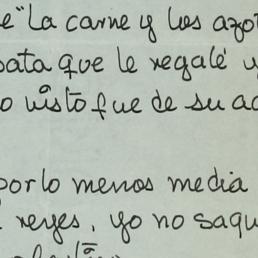 e "La carne y los azot
bata que le regalé y
o visto fue de su ag
por lo menos media
reyes, yo no saqu